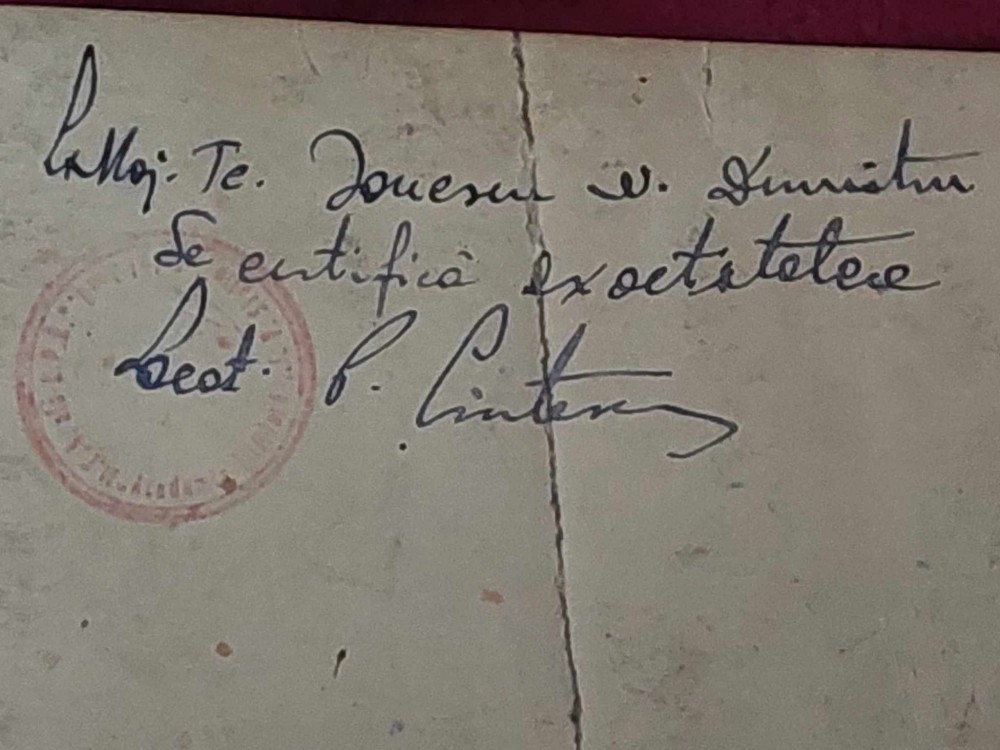 Maj. Tc. Ionescu N. Dumitru
Se certifică exactitatea
Leot. P. Cintescu